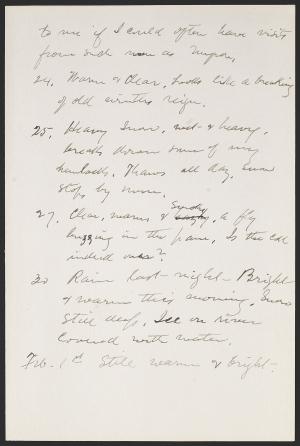 to me if I could often have visits
from such men as
24. Warm & Clear, Looks like a breaking
of old winters reign.
25. Heavy Snow, wet & heavy,
breaks down some of my
hemlocks. Thaws all day, snow
stops by noon.
27. Clear, warm & Sunday, a fly
buzzing in the pane, Is the cold
indeed over?
30 Rain last night - Bright
& warm this morning, Snow
still deep, Ice on river
covered with water.
Feb. 1st Still warm & bright.